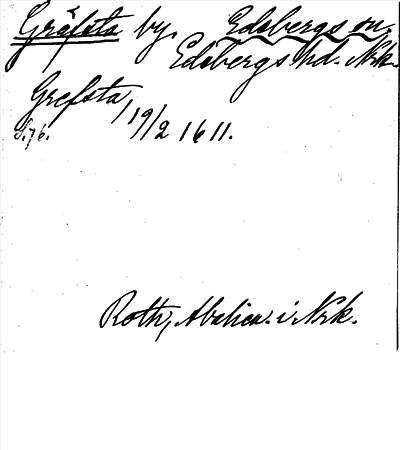 Gräfsta by. Edsbergs sn,
Edsbergs hd. Nrk.
Grefsta, 19/2 1611.
S. 76.
Roth, Abelien. i Nrk.